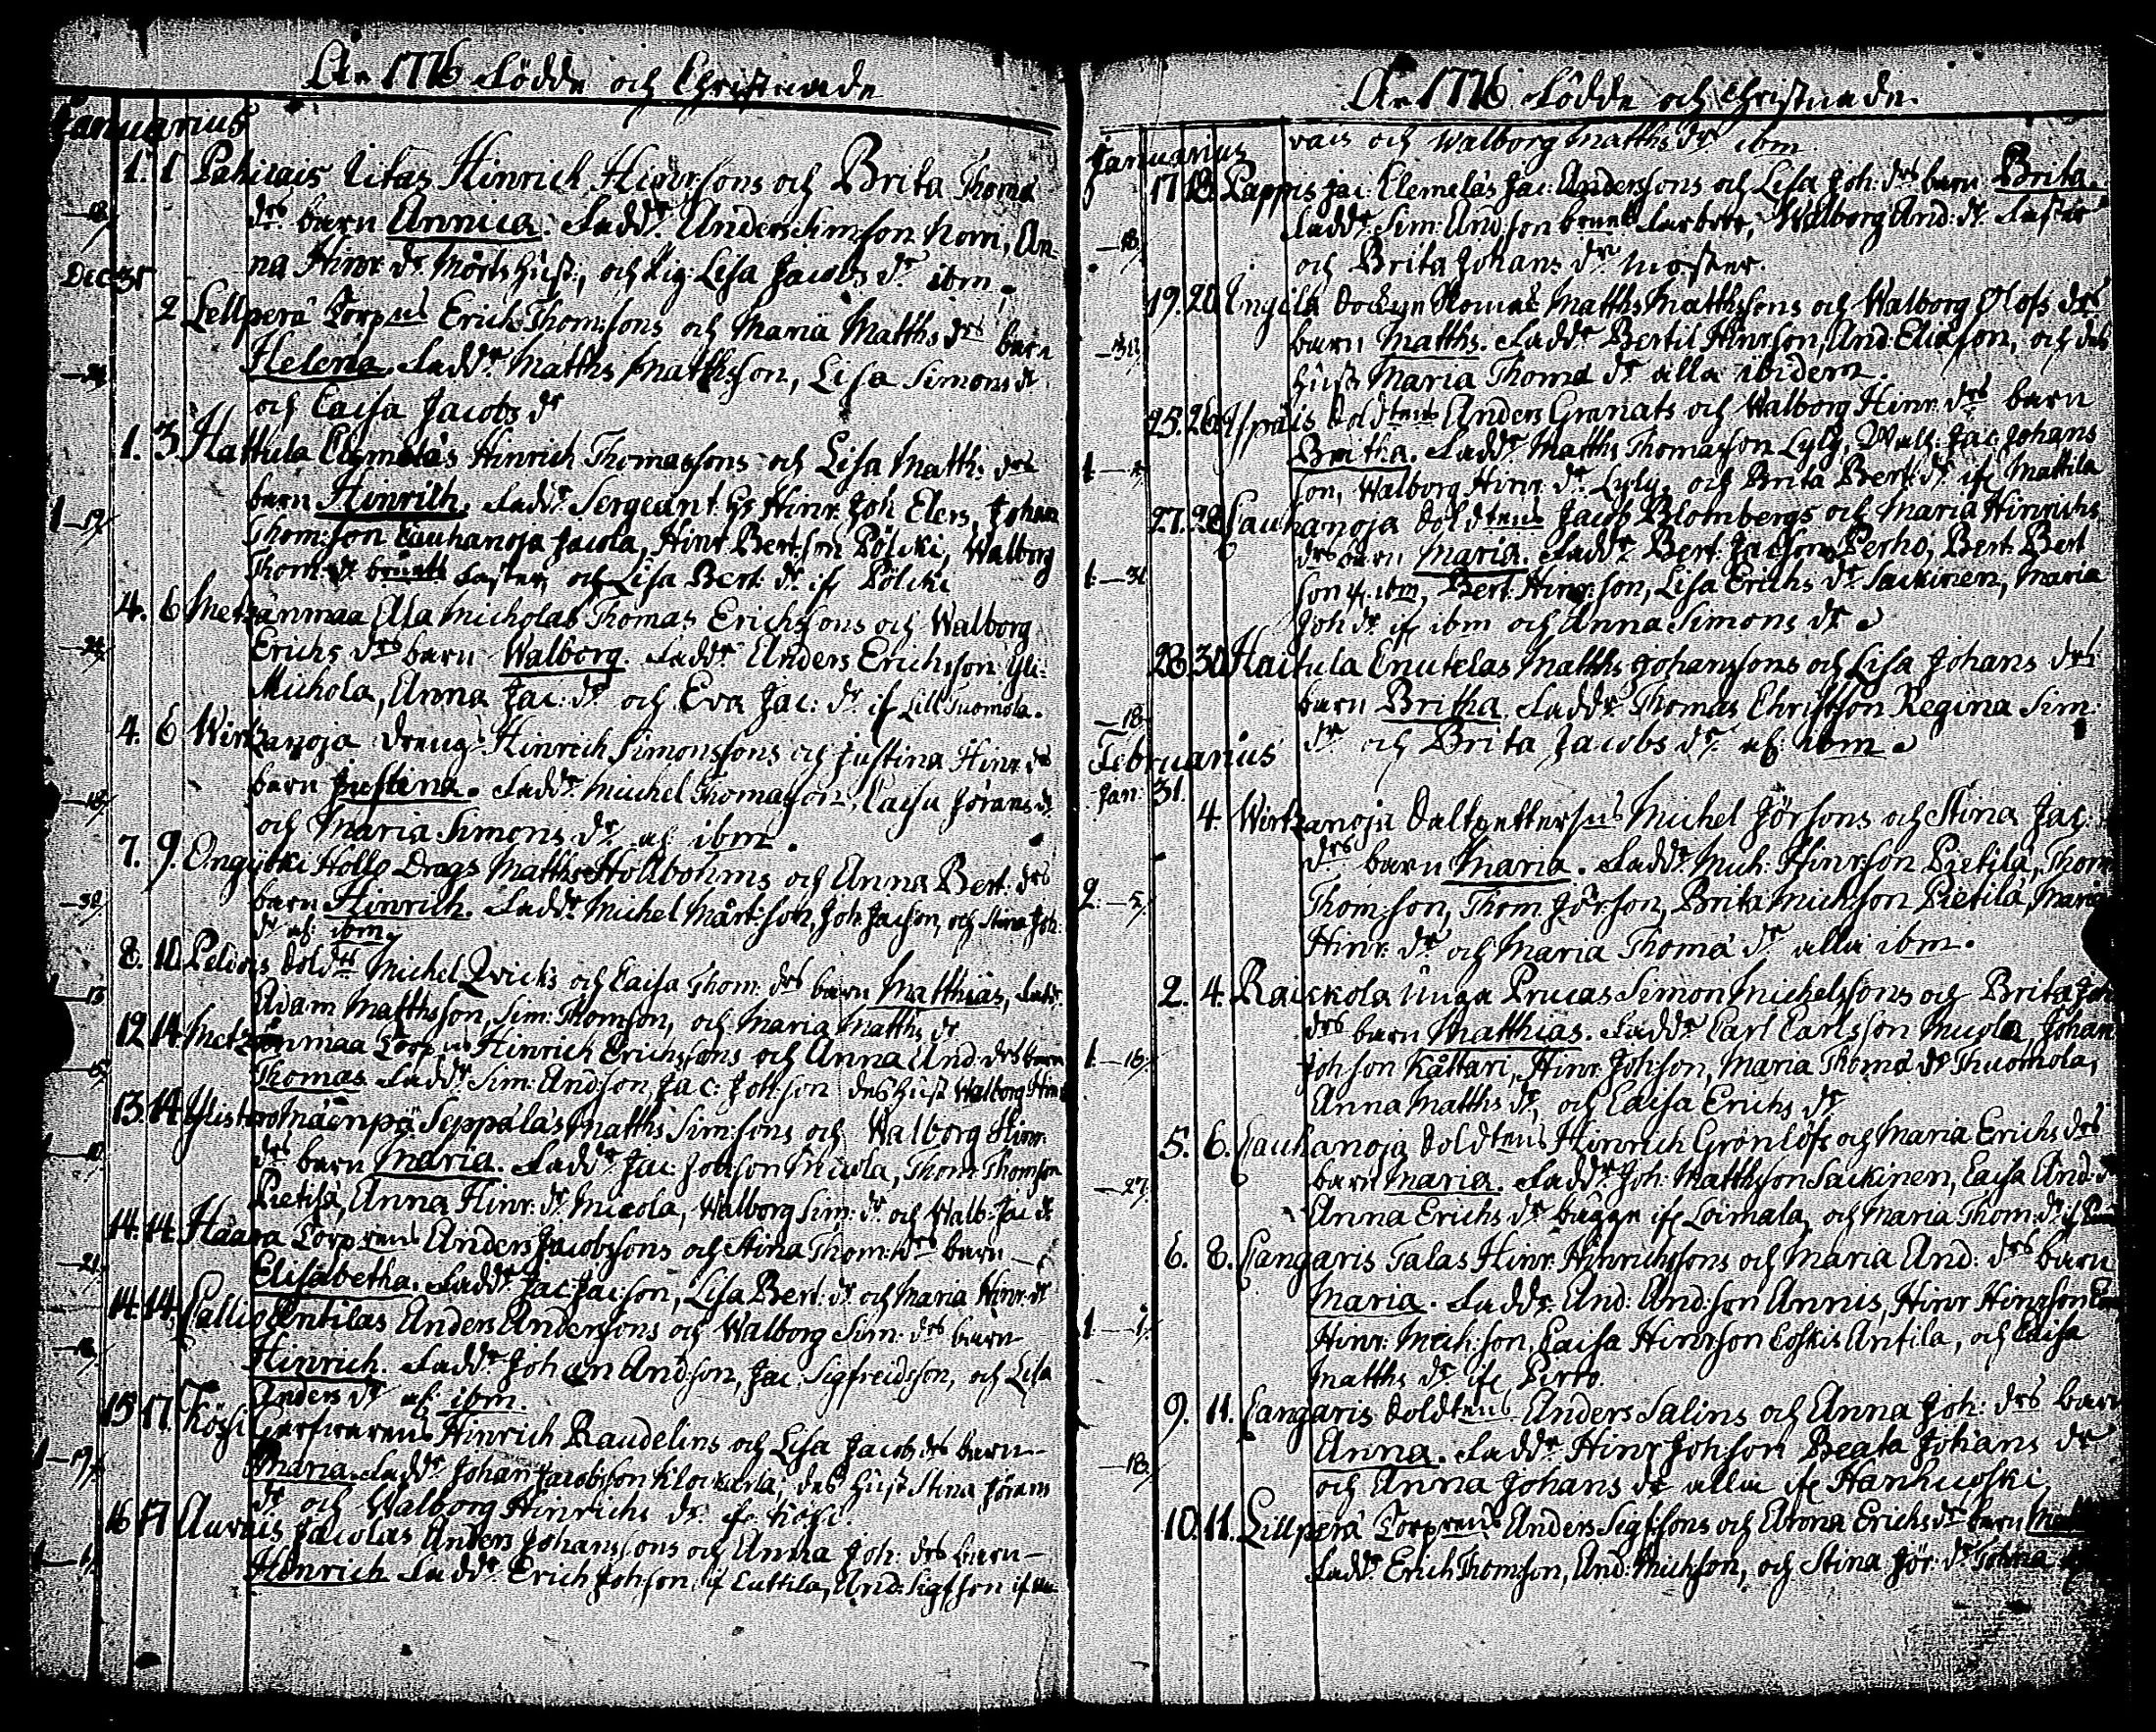 År 1776 Födde och Christnade
Januarius
1. 1 Pakicais Litas Hinrich Hinr:sons och Brita Thoma
drs barn Annica. Faddr Anders Simson Nomi, An-
na Hinr: dr Mörts hust:, och Pig: Lisa Jacobs dr ibm.
Dec: 31
2 Lellperä Torp:ns Erich Thom:sons och Maria Matths drs barn
Helena. Faddr Matths Matthsson, Lisa Simons dr
och Caisa Jacobs dr
1. 3. Hattula Clemelas Hinrich Thomassons och Lisa Matth: drs
barn Hinrich. Faddr Sergeant Hr Hinr: Joh Elers, Johan
Thom:son Cauhanoja Jacola, Hinr: Bert:son Pölcki, Walborg
Thom: dr Faster, och Lisa Bert: dr if Pölcki
4. 6 Metzänmaa Ella Micholas Thomas Erichssons och Walborg
Erichs drs barn Walborg. Faddr Anders Erichsson Yli-
Michola, Anna Jac: dr och Eva Jac: dr if Lill Tuomola.
4. 6 Wirtzanoja drengs Hinrich Simonssons och Justina Hinr: drs
barn Justina. Faddr Michel Thomasson, Caisa Jörans dr
och Maria Simons dr af ibm.
7. 9. Ongitki Hollo Drags Matths Hollbohms och Anna Bert: drs
barn Hinrich. Faddr Michel Mårt:son, Joh: Jacson, och Stina Joh:
dr af ibm.
8. 10 Peldois Sold:ts Michel Qvicks och Caisa Thom: drs barn Matthias, Fadr
Adam Matthsson, Sim: Thomson, och Maria Matths dr
12 14 Metzänmaa Torp:ns Hinrich Erichssons och Anna And: drs barn
Thomas. Faddr Sim: Andson, Jac: Joh:son des Hust Walborg Hinr
13. 14 Ylistaro Mäenpä Seppäläs Matths Sim:sons och Walborg Hinr:
drs barn Maria. Faddr Jac: Johson Micola, Thom: Thomson
Pietilä, Anna Hinr: dr Micola, Walborg Sim: dr och Walb: Jac dr
14. 14. Haara Torp:rens Anders Jacobssons och Stina Thom: drs barn
Elisabetha. Faddr Jac: Jacson, Lisa Bert: dr och Maria Hinr: dr
14. 14. Callio Antilas Anders Anderssons och Walborg Sim: drs barn
Hinrich. Faddr Johan Andson, Jac: Sigfreidsson, och Lisa
Anders dr af ibm.
15 17. Köysi Garfvarens Hinrich Raudelins och Lisa Jacobs drs barn
Maria. Faddr Johan Jacobsson Klockarla, des Hust Stina Jörans
dr och Walborg Hinrichs dr if Köysi.
16 17 Auvais Jacolas Anders Johanssons och Anna Joh: drs barn
Hinrich Faddr Erich Johson, if Cuttila, And: Sigfson if Au-
År 1776 Födde och Christnade.
vais och Walborg Matths dr ibm
Januarius
17 18. Pappis Jac: Clemelas Jac: Anderssons och Lisa Joh: drs barn Brita.
Faddr Sim: Andson Farbror, Walborg And: dr Faster
och Brita Johans dr Moster.
19. 20 Ingila Matths Matthssons och Walborg Olofs drs
barn Matths. Faddr Bertil Hinrson, And: Eliason, och des
Hust: Maria Thoma dr alla ibidem.
25. 26 Ispäis Soldtens Anders Granats och Walborg Hinr: drs barn
Britha. Faddr Matths Thomasson Lyly, Walb: Jac: Johans
son, Walborg Hinr: dr Lyly, och Brita Bert: dr ifr Mattila
27. 28 Cauhanoja Soldtens Jacob Blombergs och Maria Hinrichs
drs barn Maria. Faddr Bert: Jacson Perho, Bert: Bert
son if: ibm, Bert: Hinr:son, Lisa Erichs dr Sackinen, Maria
Joh: dr if ibm och Anna Simons dr
28 30 Haitula Cnutelas Matths Johanssons och Lisa Johans drs
barn Britha. Faddr Thomas Christson Regina Sim:
dr och Brita Jacobs dr af: ibm
Februarius
Jan: 31.
4. Wirtzanoja Saltpetters:ns Michel Jörsons och Stina Jac:
drs barn Maria. Faddr Mich: Hinrson Pietilä, Thom
Thomson, Thom: Jörson, Brita Michson Pietilä, Maria
Hinr: dr och Maria Thoma dr alla ibm.
2. 4. Raickola Unga Prucas Simon Michelssons och Brita Joh
drs barn Matthias. Faddr Carl Carlsson Micola, Johan
Johson Kåttari, Hinr Johson, Maria Thoma dr Thuomola,
Anna Matths dr, och Caisa Erichs dr
5. 6. Cauhanoja Soldtens Hinrich Grönlöfs och Maria Erichs drs
barn Maria. Faddr Joh: Matthsson Sackinen, Caisa And: dr
Anna Erichs dr bägge ifr Loimala, och Maria Thom: dr if
6. 8. Cangaris Talas Hinr: Hinrichssons och Maria And: drs barn
Maria. Faddr And: And:son Annis, Hinr Hinrson
Hinr: Mich:son, Caisa Hinrson Coskis Antila, och Caisa
Matths dr ifr Pirto
9. 11. Cangaris Soldtens Anders Salins och Anna Joh: drs barn
Anna. Faddr Hinr Johson Beata Johans dr
och Anna Johans dr alla ifr Hanhuoski
10. 11. Lillperä Torprens Anders Sigfsons och Anna Erichs dr barn
Faddr Erich Thomson, And: Michson, och Stina Jör: dr